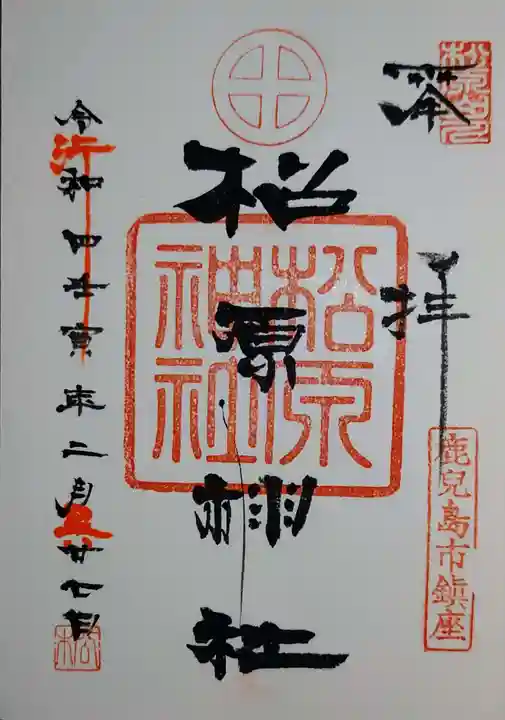 奉拝
鹿兒島市鎮座
松原神社
松原神社
令和四壬寅年二月廿七日
松